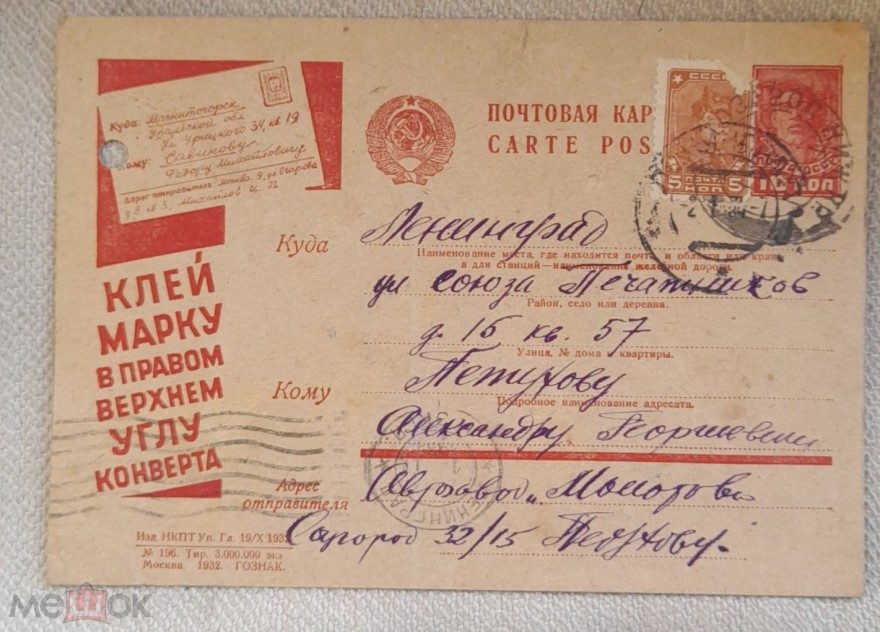 Куда: Магнитогорск
Уральской обл
ул Урицкого 34, кв 19
Кому: Савинову
Федору Михайловичу
Адрес отправителя: Москва, 9, ул Огарева
д 8, кв 5, Михайлов И. П
КЛЕЙ
МАРКУ
В ПРАВОМ
ВЕРХНЕМ
УГЛУ
КОНВЕРТА
ПОЧТОВАЯ КАР
CARTE POS
СССР
5 ПОЧТА 5
КОП
10 КОП
Куда Ленинград
Наименование места, где находится почта, и области или края,
а для станций—наименование железной дороги.
ул Союза Печатников
Район, село или деревня.
д. 15 кв. 57
Улица, № дома и квартиры.
Кому Петухову
Подробное наименование адресата.
Александру Георгиевичу
Адрес
отправителя
Автозавод „Молотова
Соцгород 32/15 Петухову.
ЛЕНИНГРАД
Изд. НКПТ Уп. Гл. 19/X 193
№ 196. Тир. 3.000.000 экз
Москва. 1932. ГОЗНАК.
мешок